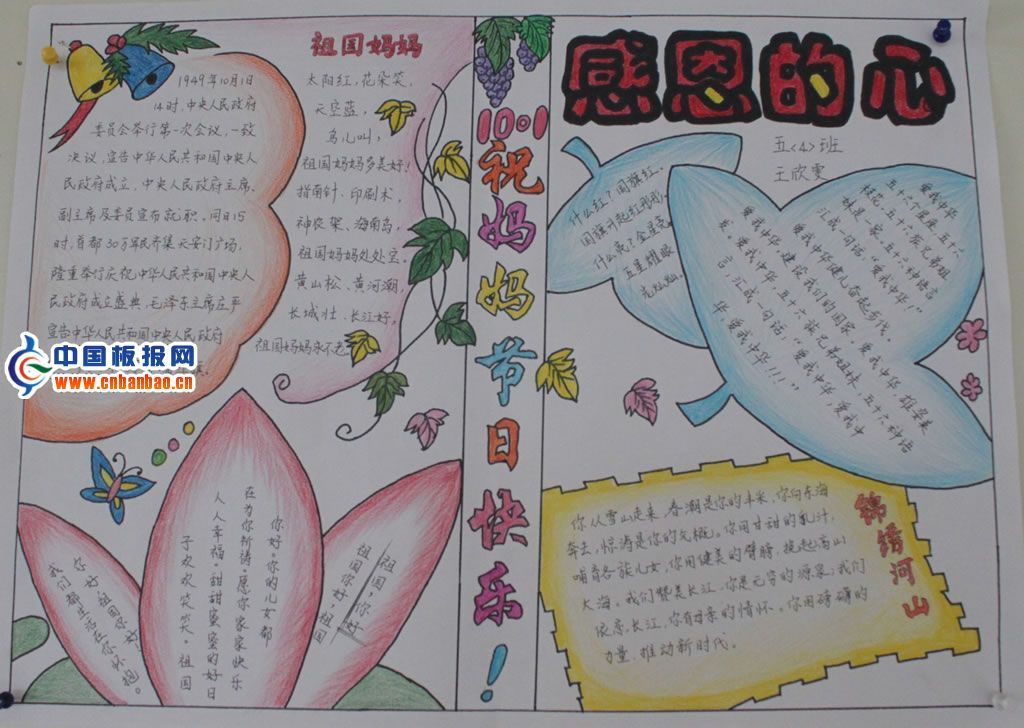 1949年10月1日
14时,中央人民政府
委员会举行第一次会议,一致
决议,宣告中华人民共和国中央人
民政府成立,中央人民政府主席、
副主席及委员宣布就职。同日15
时,首都30万军民齐集天安门广场,
隆重举行庆祝中华人民共和国中央人
民政府成立盛典,毛泽东主席庄严
宣告中华人民共和国中央人民政府
中国板报网
www.cnbanbao.cn
祖国妈妈
太阳红,花朵笑,
天空蓝,
鸟儿叫,
祖国妈妈多美好!
指南针、印刷术,
神农架、海南岛,
祖国妈妈处处宝。
黄山松、黄河潮,
长城壮、长江好,
祖国妈妈永不老
我们都生活在你怀抱。
你好祖国你好!
你好。你的儿女都
在为你祈祷。愿你家家快乐
人人幸福。甜甜蜜蜜的好日
子欢欢笑笑。祖国
祖国,你好
祖国你好,祖国
10.1
祝妈妈节日快乐!
感恩的心
五<4>班
王欣雯
什么红?国旗红。
国旗升起红彤彤,
什么亮?金星亮
五星耀眼
亮灿灿。
爱我中华
五十六个星座五十六
枝花,五十六族兄弟姐
妹是一家,五十六种语言
汇成一句话"爱我中华,
爱我中华健儿奋起步伐。
爱我中华,建设我们的国家,爱我中华,雄姿英
发。爱我中华,五十六族兄弟姐妹,五十六种语
言,汇成一句话"爱我中华,爱我中
华,爱我中华!!!"
锦绣河山
你从雪山走来,春潮是你的丰采,你向东海
奔去,惊涛是你的气概。你用甘甜的乳汁,
哺育各族儿女,你用健美的臂膀,挽起高山
大海。我们赞美长江,你是无穷的源泉;我们
依恋长江,你有母亲的情怀。你用磅礴的
力量,推动新时代。